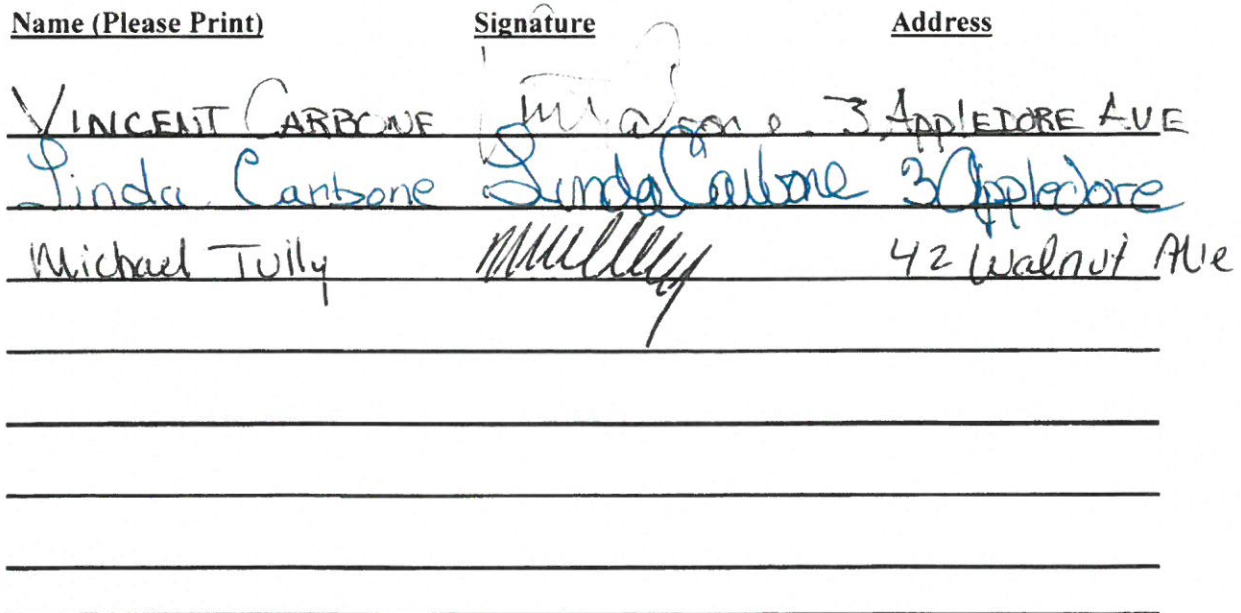 Name (Please Print) Signature Address
VINCENT CARBONE 3 APPLEDORE AVE
Linda Carbone Linda Carbone 3 Appledore
Michael Tully 42 Walnut Ave